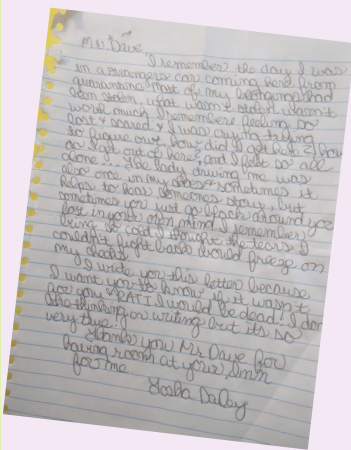 Mr. Dave
I remember the day I was
in a strangers car coming here from
quarantine most of my belongings had
been stolen, what wasn't stolen wasn't
worth much, I remember feeling so
lost & scared & I was crying trying
to figure out how did I get here & how
do I get out of here, and I felt so all
alone. The lady driving me was
also once in my shoes sometimes it
helps to hear someones story, but
sometimes you just go black around you
lost in your own mind. I remember
being so cold I thought the tears I
couldn't fight back would freeze on
my cheeks.
I write you this letter because
I want you to know, if it wasn't
for you & I would be dead. I don't
like thinking or writing but its so
very true!
Thank you Mr. Dave for
having room at your Inn
for me.